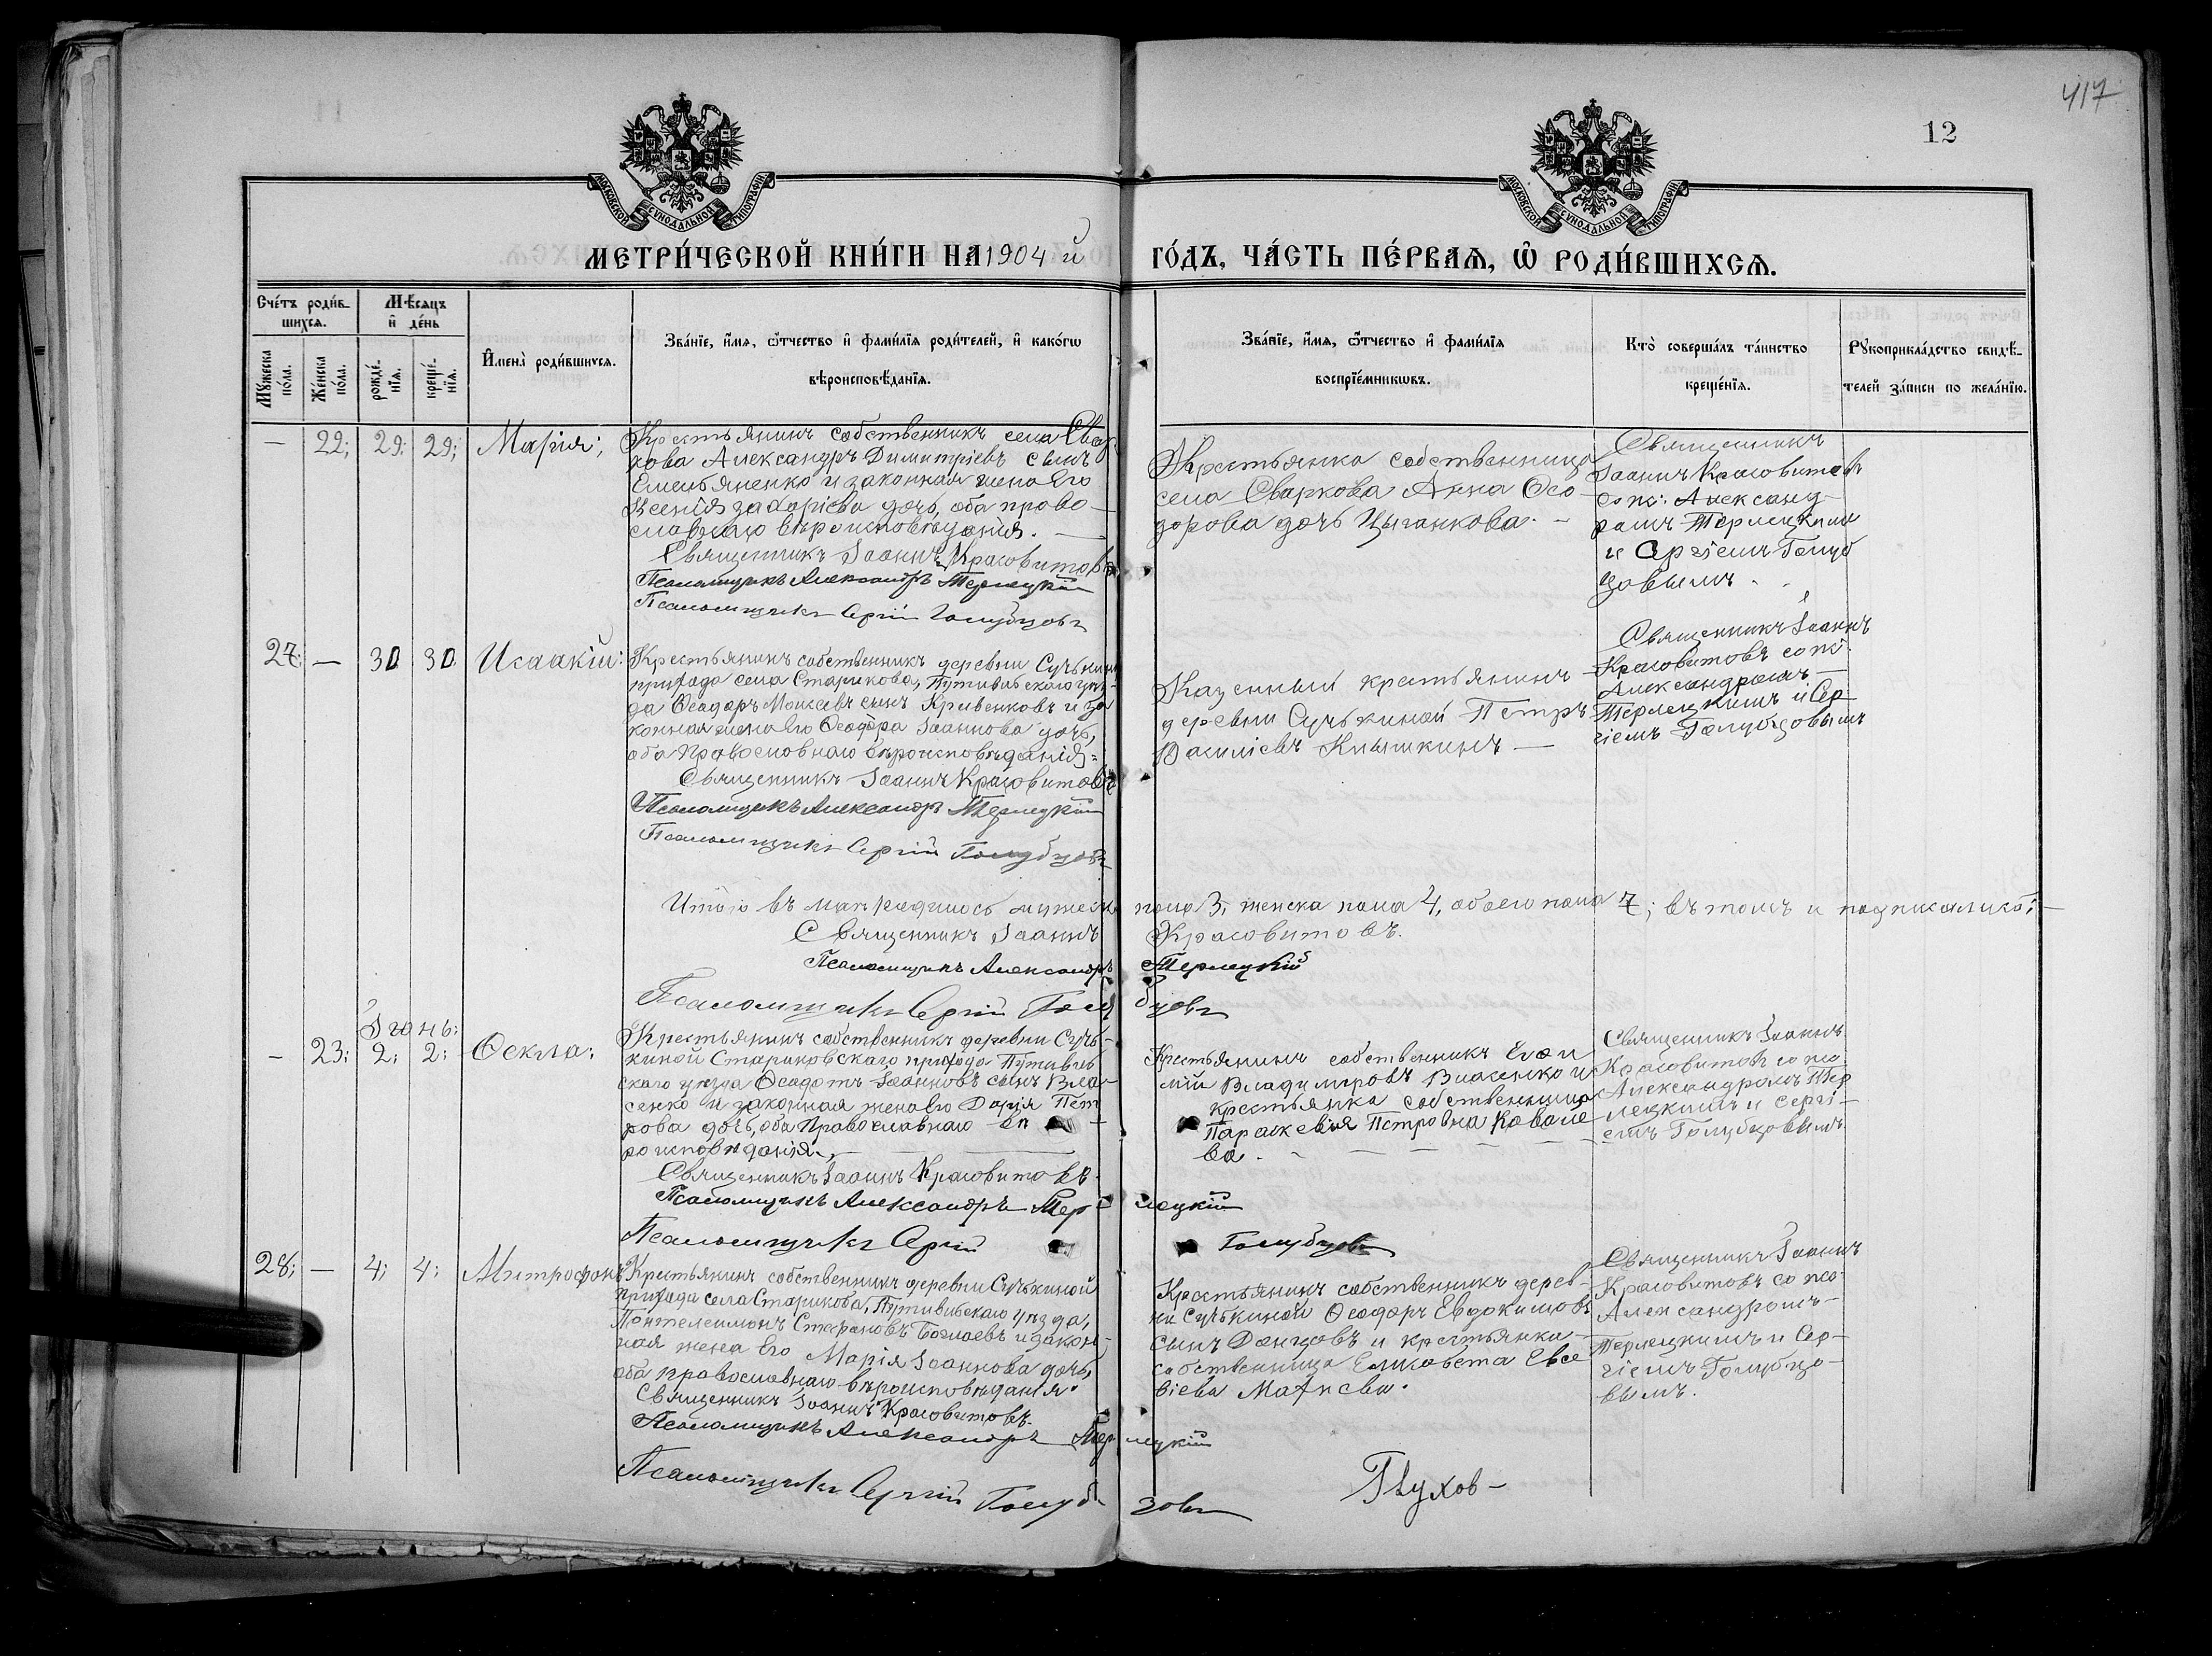 417
12
МОСКОВСКОЙ СѴНОДАЛЬНОЙ ТИПОГРАФІИ
МОСКОВСКОЙ СѴНОДАЛЬНОЙ ТИПОГРАФІИ
МЕТРИ́ЧЕСКОЙ КНИ́ГИ НА 1904 й ГО́ДЪ, ЧА́СТЬ ПЕ́РВАѦ, Ѡ РОДИ́ВШИХСѦ.
Сче́тъ роди́в-
шихсѧ.
Мѣсѧцъ
и де́нь
Мꙋжеска по́ла.
Же́нска по́ла.
рожде́-
нїѧ.
креще́-
нїѧ.
И҆мена̀ роди́вшихсѧ.
Зва́нїе, и҆́мѧ, ѻ҆́тчество и҆ фами́лїѧ роди́телей, и҆ како́гѡ
вѣроисповѣ́данїѧ.
Зва́нїе, и҆́мѧ, ѻ҆́тчество и҆ фами́лїѧ
воспрїе́мникѡвъ.
Кто̀ соверша́лъ та́инство
креще́нїѧ.
Рꙋкоприкла́дство свидѣ́-
телей за́писи по жела́нїю.
— 22; 29; 29; Марія;
Крестьянинъ собственникъ села Свар-
кова Александръ Димитріевъ сынъ
Емельяненко и законная жена его
Ксенія Захаріева дочь, оба право-
славнаго вѣроисповѣданія. —
Священникъ Іоаннъ Красовитовъ
Псаломщикъ Александръ Терлецкій
Псаломщикъ Сергій Голубцовъ
Крестьянка собственница
села Сваркова Анна Ѳео-
дорова дочь Цыганкова. —
Священникъ
Іоаннъ Красовитовъ
со пс: Александ-
ромъ Терлецкимъ
и Сергіемъ Голуб
цовымъ.
27; — 30 30 Исаакій:
Крестьянинъ собственникъ деревни Сучькиной
прихода села Старикова, Путивльскаго уѣз-
да Ѳеодоръ Моисеевъ сынъ Кривенковъ и за
конная жена его Ѳеодора Іоаннова дочь,
оба православнаго вѣроисповѣданія.
Священникъ Іоаннъ Красовитовъ
Псаломщикъ Александръ Терлецкій
Псаломщикъ Сергій Голубцовъ
Казенный крестьянинъ
деревни Сучькиной Петръ
Василіевъ Кнышкинъ —
Священникъ Іоаннъ
Красовитовъ со пс:
Александромъ —
Терлецкимъ и Сер-
гіемъ Голубцовымъ
Итого въ маѣ родилось мужеска пола 3, женска пола 4, обоего пола 7; въ томъ и подписались: —
Священникъ Іоаннъ Красовитовъ.
Псаломщикъ Александръ Терлецкій
Псаломщикъ Сергій Голубцовъ
Іюнь:
— 23; 2; 2; Ѳекла;
Крестьянинъ собственникъ деревни Сучь-
киной Стариковскаго прихода Путивль
скаго уѣзда Ѳеодотъ Іоанновъ сынъ Вла-
сенко и законная жена его Дарія Пет
рова дочь, оба православнаго вѣ —
роисповѣданія. —
Священникъ Іоаннъ Красовитовъ.
Псаломщикъ Александръ Терлецкій
Псаломщикъ Сергій Голубцовъ
Крестьянинъ собственникъ
Владиміровъ Власенко и
крестьянка собственница
Параскевія Петровна Ковале
ва. —
Священникъ Іоаннъ
Красовитовъ со пс:
Александромъ Тер
лецкимъ и Сергі-
емъ Голубцовымъ.
28; — 4; 4; Митрофанъ
Крестьянинъ собственникъ деревни Сучькиной
прихода села Старикова, Путивльскаго уѣзда,
Пантелеимонъ Стефановъ и закон-
ная жена его Марія Іоаннова дочь,
оба православнаго вѣроисповѣданія.
Священникъ Іоаннъ Красовитовъ.
Псаломщикъ Александръ Терлецкій
Псаломщикъ Сергій Голубцовъ
Крестьянинъ собственникъ дерев-
ни Сучькиной Ѳеодоръ Евдокимовъ
сынъ Донцовъ и крестьянка —
собственница Елисавета Евсе
віева
Священникъ Іоаннъ
Красовитовъ со пс:
Александромъ —
Терлецкимъ и Сер-
гіемъ Голубцо-
вымъ.
Глухов-